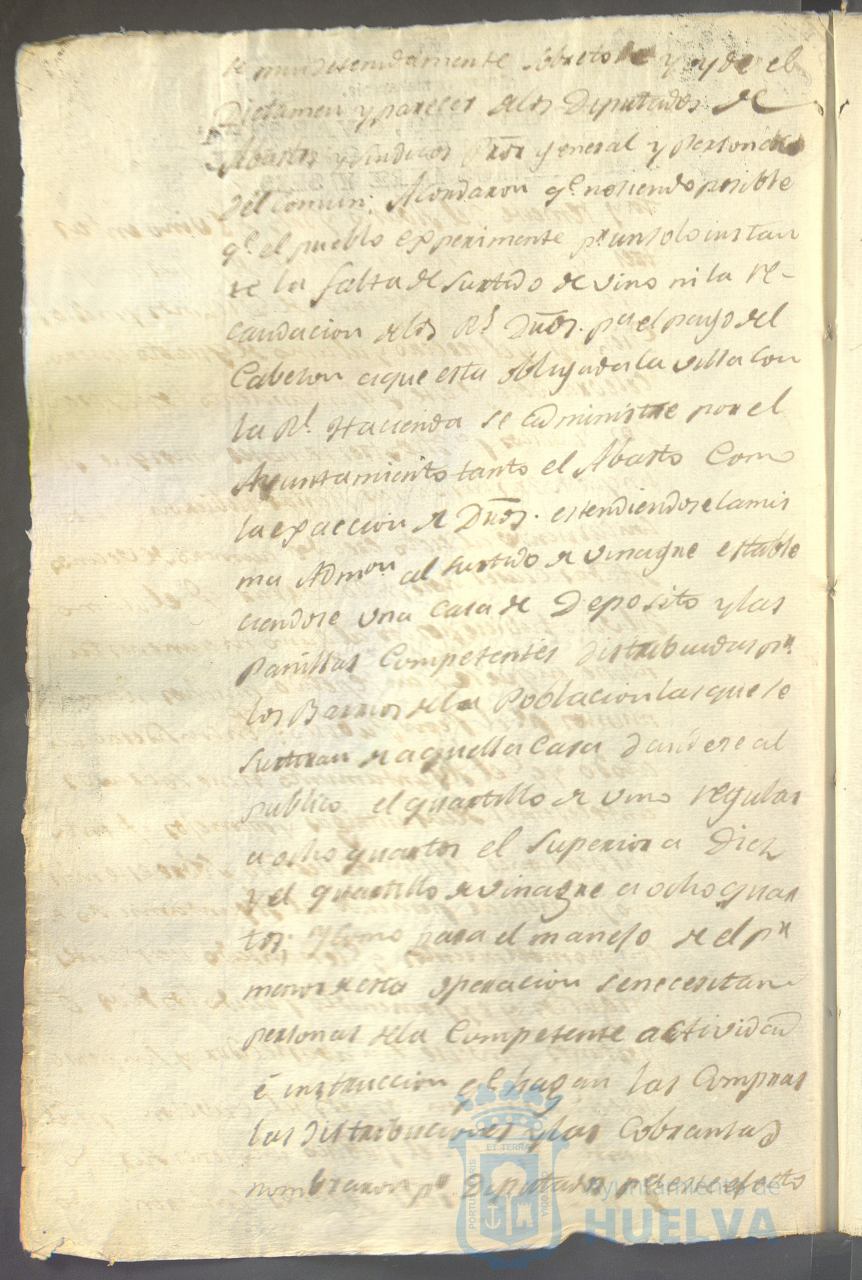 se mui detenidamente sobre todo y oydo el
Dictamen y parecer de los Diputados de
Abastos y sindicos Prõr general y Personero
del comun; Acordaron qe. no siendo posible
qe. el pueblo experimente pr. un solo instan
te la falta de surtido de vino ni la re-
caudacion de los Rs. Dr̃os. pa. el pago del
Cabezon a que esta obligada la villa con
la Rl. Hacienda se administre por el
Ayuntamiento tanto el Abasto Como
la exaccion de Dr̃os. estendiendose la mis
ma Admon. al surtido de vinagre estable
ciendose una casa de Deposito y las
Panillas Competentes distribuidas pr.
los Barrios de la Poblacion las que se
surtiran de aquella Casa dandose al
publico el quartillo de vino regular
a ocho quartos el superior a Diez
y el quartillo de vinagre a ocho quar
tos. Y como para el manejo de el pr.
menor de esta operacion se necesitan
personas de la Competente actividad
é instruccion qe. hagan las Compras
las distribuciones y las Cobranzas
nombraron pr. Diputados pa. este efecto
PORTUS MARIS
ET TERRAE
CUSTODIA
Ayuntamiento de
HUELVA